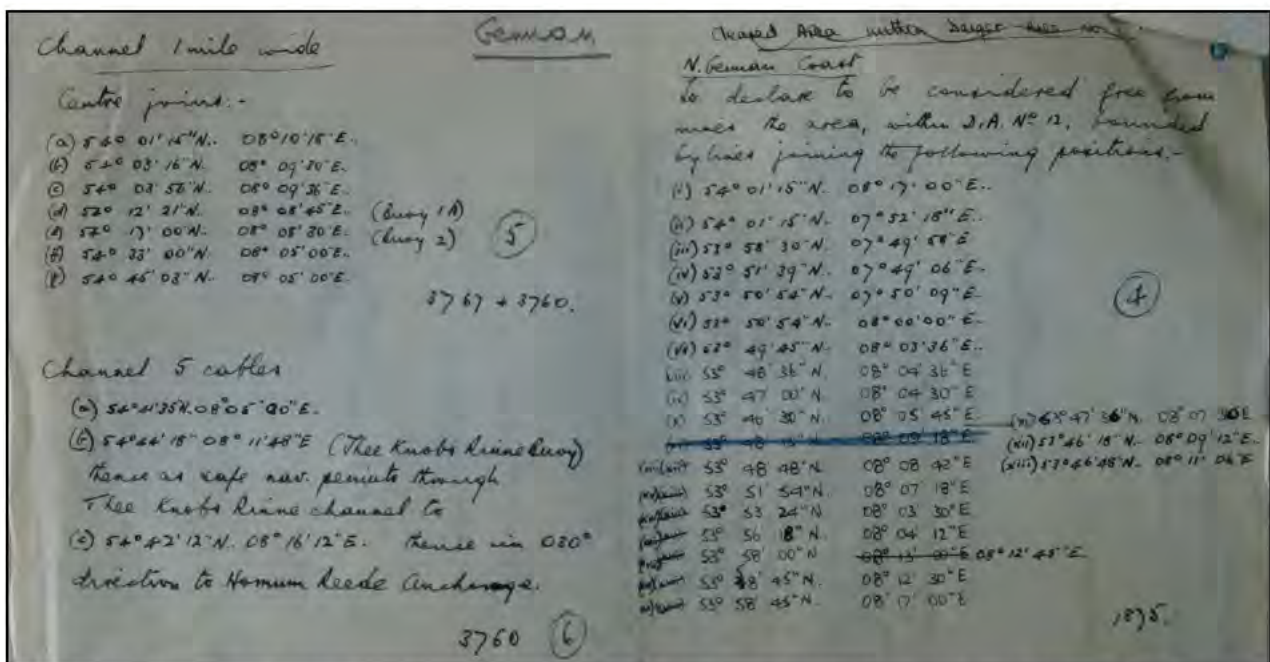 German
Channel 1 mile wide
Centre joins:-
(a) 54° 01' 15"N. 08° 10' 15"E.
(b) 54° 03' 16"N. 08° 09' 30"E.
(c) 54° 03' 56"N. 08° 09' 36"E.
(d) 52° 12' 21"N. 08° 08' 45"E. (Buoy 1A)
(e) 54° 17' 00"N. 08° 08' 30"E. (Buoy 2)
(f) 54° 33' 00"N. 08° 05' 00"E.
(g) 54° 46' 03"N. 08° 05' 00"E.
5
3767 + 3760.
Channel 5 cables
(a) 54° 41' 35"N. 08° 05' 00"E.
(b) 54° 44' 18" 08° 11' 48"E (Thee Knobs Rinne Buoy)
thence as safe nav. permits through
Thee Knobs Rinne channel to
(c) 54° 42' 12"N. 08° 16' 12"E. thence in 030°
direction to Hornum Reede Anchorage.
3760 6
Cleared Area within Danger Area No
N. German Coast
To declare to be considered free from
mines the area, within D.A. No 12, bounded
by lines joining the following positions.-
(i) 54° 01' 15"N. 08° 17' 00"E..
(ii) 54° 01' 15"N. 07° 52' 18"E
(iii) 53° 58' 30"N. 07° 49' 58"E
(iv) 53° 51' 39"N. 07° 49' 06"E.
(v) 53° 50' 54"N. 07° 50' 09"E.
(vi) 53° 50' 54"N. 08° 00' 00"E.
(vii) 53° 49' 45"N. 08° 03' 36"E..
(viii) 53° 48' 36"N. 08° 04' 36"E
(ix) 53° 47' 00"N. 08° 04' 30"E
(x) 53° 46' 30"N. 08° 05' 45"E.
(xi) 53° 47' 36"N. 08° 07' 36E
(xii) 53° 46' 18"N. 08° 09' 12"E..
(xiii) 53° 46' 48"N. 08° 11' 06"E
53° 48' 15"N. 08° 09' 18"E.
53° 48' 48"N. 08° 08' 42"E
53° 51' 54"N. 08° 07' 18"E
53° 53' 24"N. 08° 03' 30"E
53° 56' 18"N. 08° 04' 12"E
53° 58' 00"N 08° 13' 00"E 08° 12' 45"E.
53° 58' 45"N. 08° 12' 30"E
53° 58' 45"N. 08° 17' 00"E
4
1875.